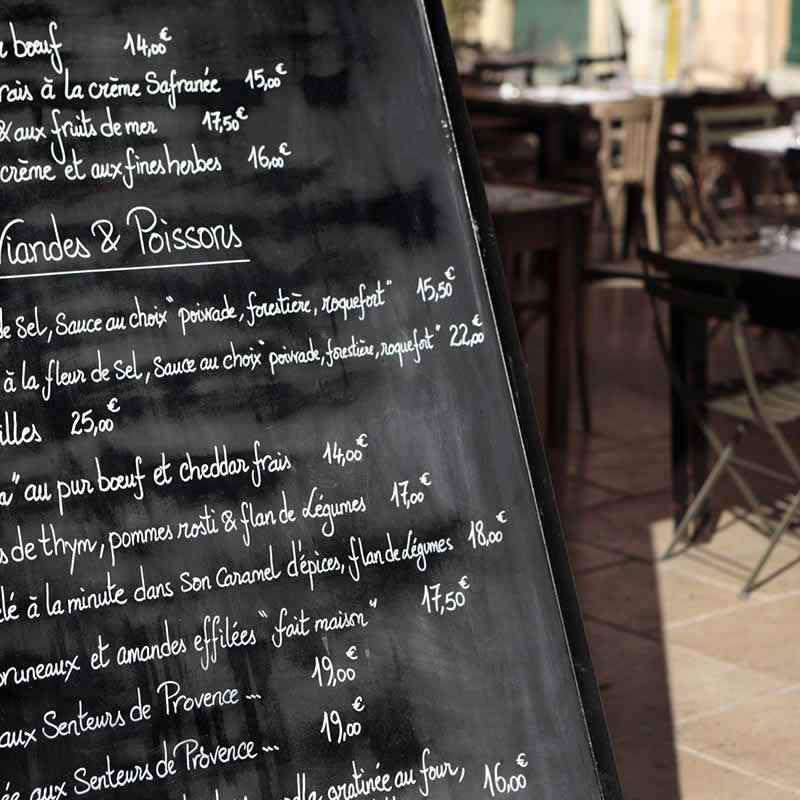 bœuf 14,00€
rais à la crème Safranée 15,00€
& aux fruits de mer 17,50€
crème et aux fines herbes 16,00€
Viandes & Poissons
de Sel, Sauce au choix "poivrade, forestière, roquefort" 15,50€
à la fleur de Sel, Sauce au choix "poivrade, forestière, roquefort" 22,00€
illes 25,00€
a" au pur bœuf et cheddar frais 14,00€
s de thym, pommes rosti & flan de Légumes 17,00€
lé à la minute dans Son Caramel d'épices, flan de Légumes 18,00€
pruneaux et amandes effilées "fait maison" 17,50€
aux Senteurs de Provence ... 19,00€
ée aux Senteurs de Provence ... 19,00€
gratinée au four, 16,00€